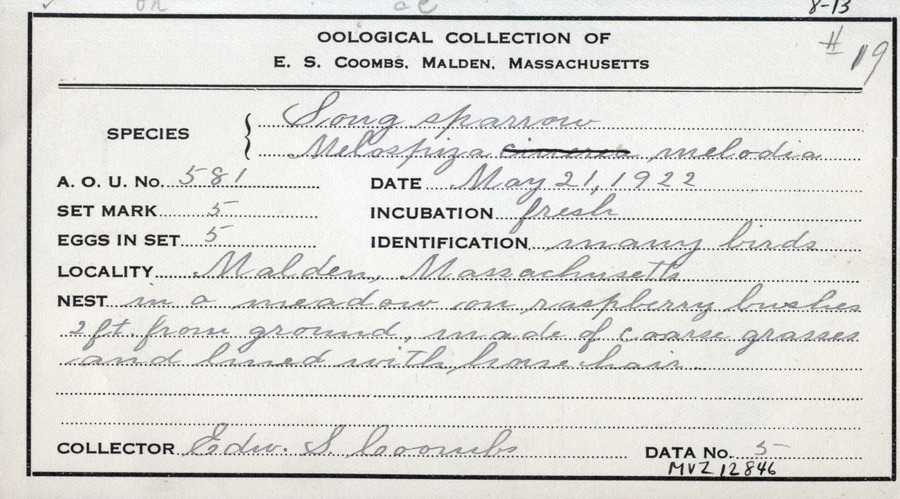 8-13
OOLOGICAL COLLECTION OF
# 19
E. S. COOMBS, MALDEN, MASSACHUSETTS
SPECIES { Song sparrow
Melospiza cinerea melodia
A. O. U. No. 581 DATE May 21, 1922
SET MARK 5 INCUBATION fresh
EGGS IN SET 5 IDENTIFICATION many birds
LOCALITY Malden, Massachusetts
NEST in a meadow on raspberry bushes
2 ft. from ground, made of coarse grasses
and lined with horse hair
COLLECTOR Edw. S. Coombs DATA No. 5
MVZ 12846